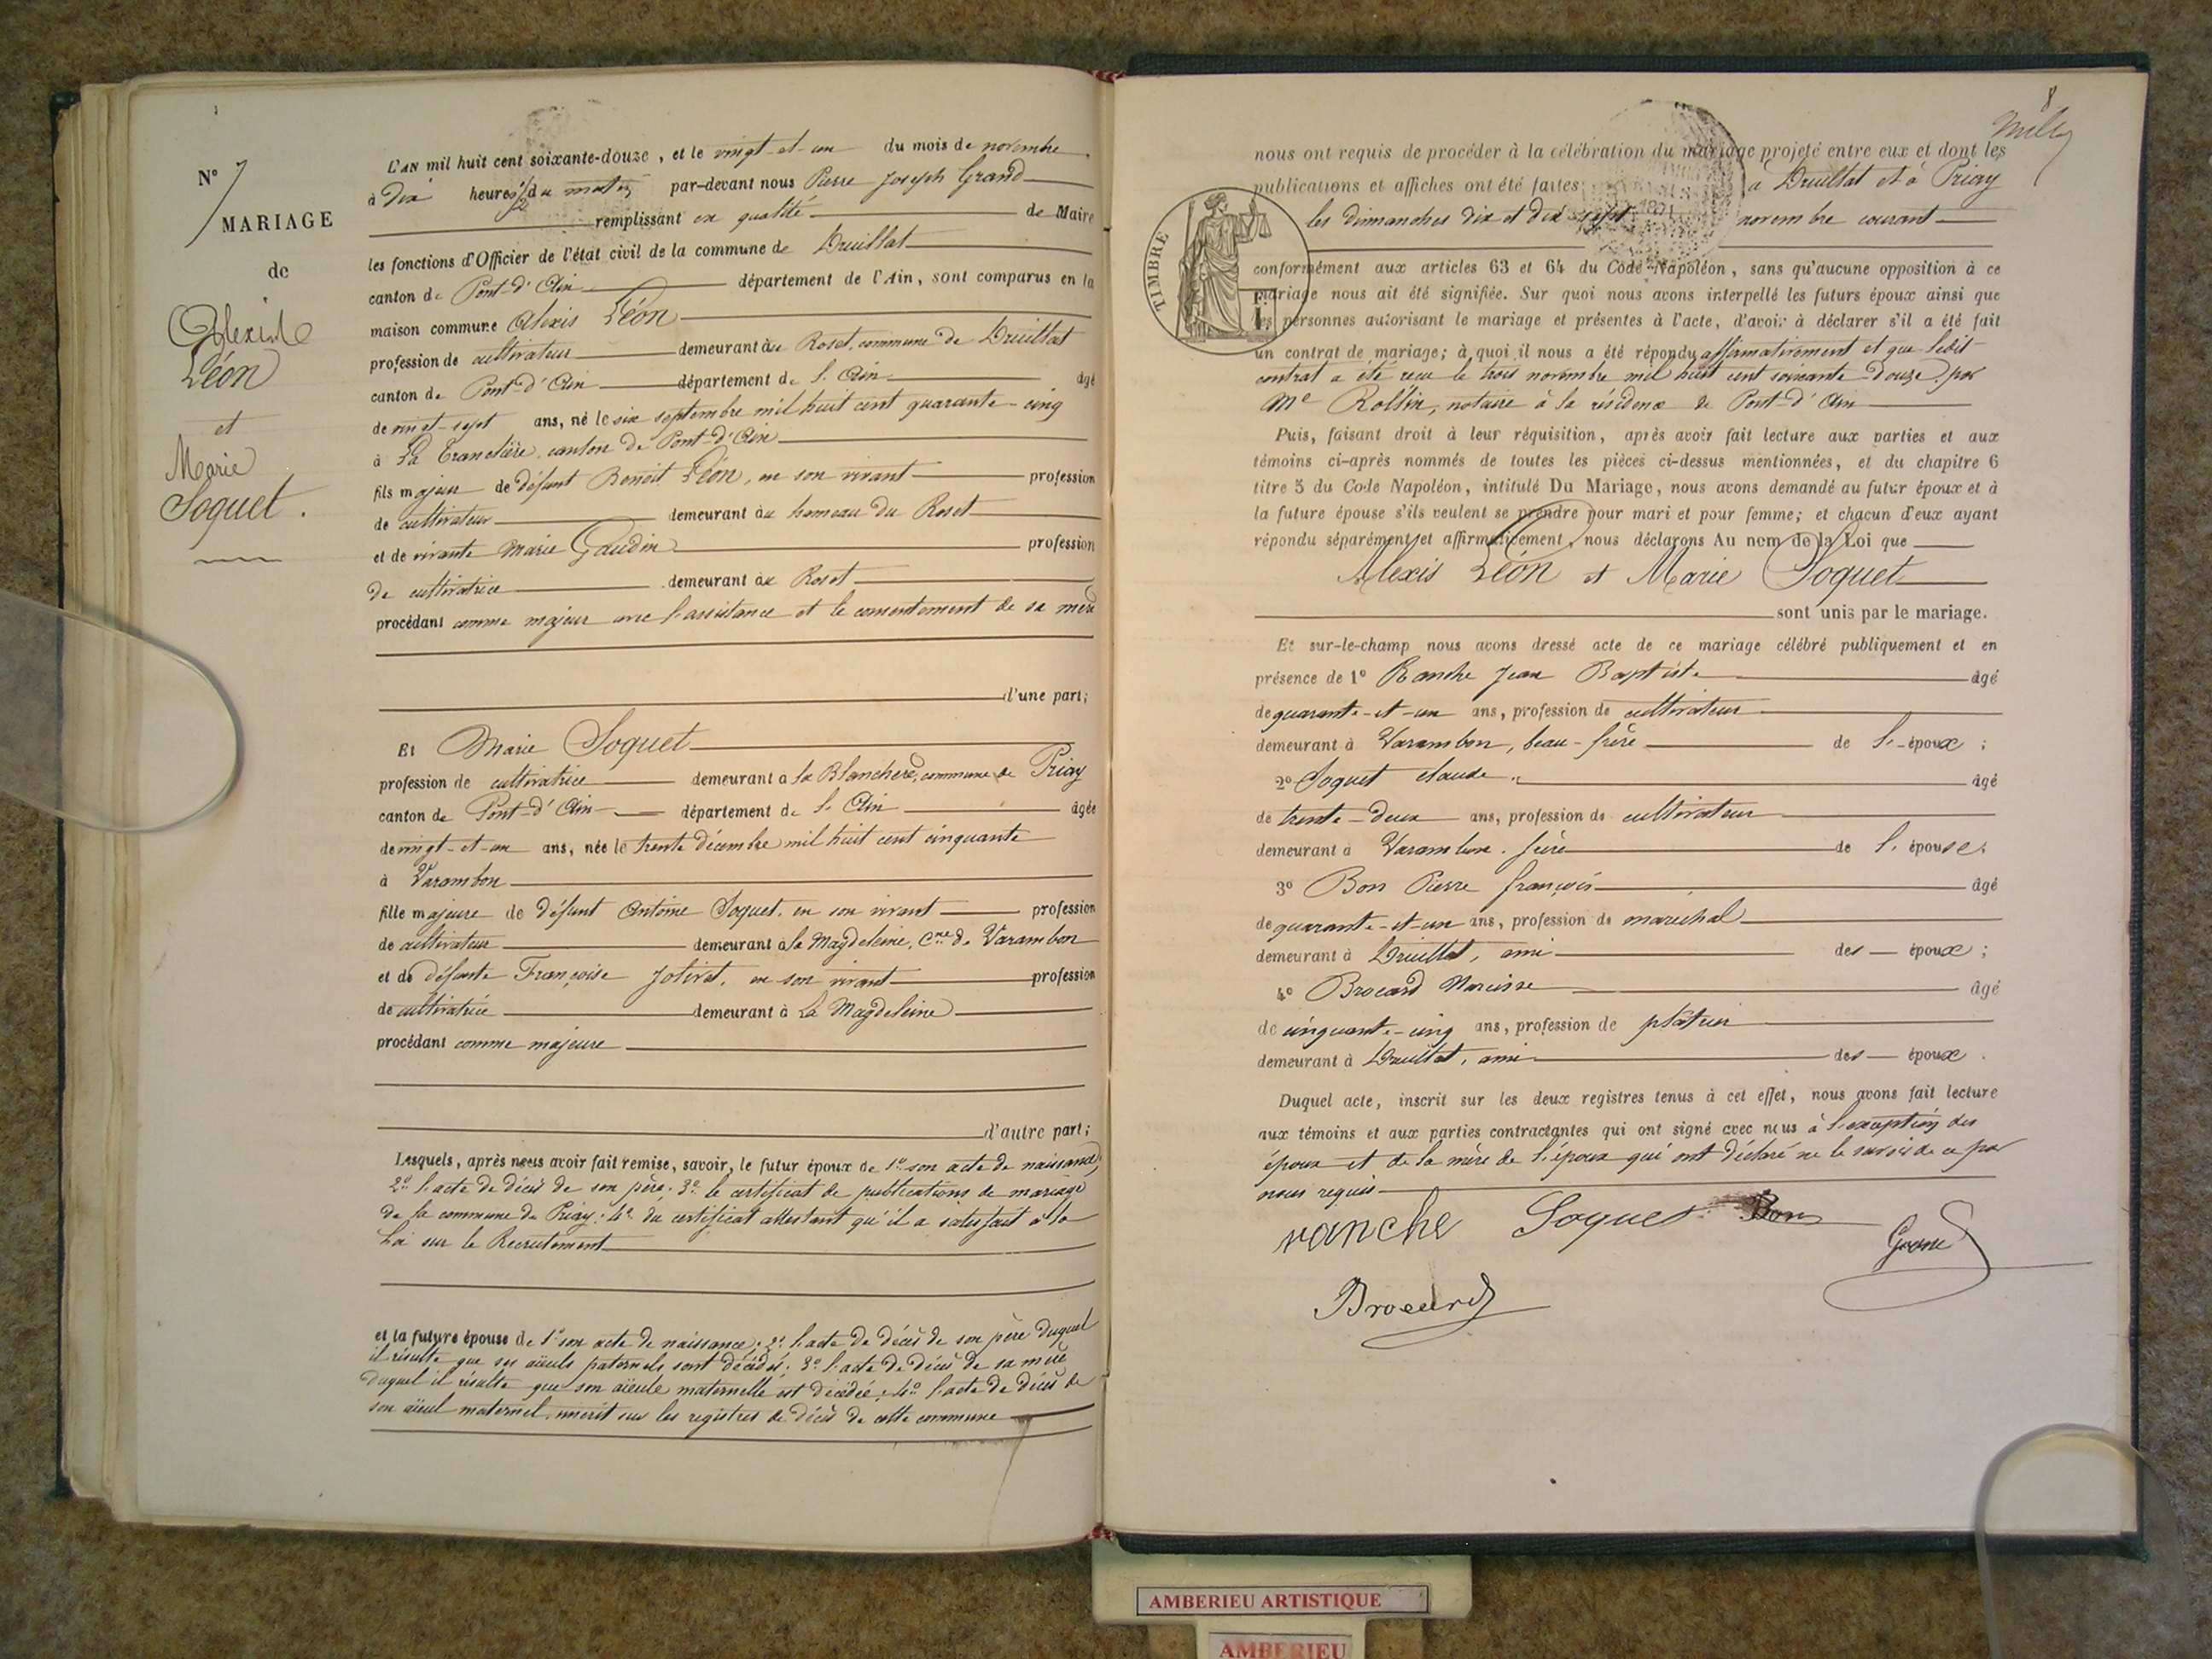 N° 7
MARIAGE
de
Alexis
Léon
et
Marie
Soquet.
L'AN mil huit cent soixante-douze, et le vingt-et-un du mois de novembre
à dix heures 1/2 du matin par-devant nous Pierre Joseph Grand
remplissant en qualité de Maire
les fonctions d'Officier de l'état civil de la commune de Druillat
canton de Pont-d'Ain département de l'Ain, sont comparus en la
maison commune Alexis Léon
profession de cultivateur demeurant au Roset, commune de Druillat
canton de Pont-d'Ain département de l'Ain âgé
de vingt-sept ans, né le six septembre mil huit cent quarante-cinq
à La Tranclière, canton de Pont-d'Ain
fils majeur de défunt Benoit Léon, en son vivant profession
de cultivateur demeurant au hameau du Roset
et de vivante Marie Gaudin profession
de cultivatrice demeurant au Roset
procédant comme majeur avec l'assistance et le consentement de sa mère
d'une part;
Et Marie Soquet
profession de cultivatrice demeurant à la Blanchere, commune de Priay
canton de Pont-d'Ain département de l'Ain âgée
de vingt-et-un ans, née le trente décembre mil huit cent cinquante
à Varambon
fille majeure de défunt Antoine Soquet, en son vivant profession
de cultivateur demeurant à la Magdeleine, Cne de Varambon
et de défunte Françoise Jolivet, en son vivant profession
de cultivatrice demeurant à La Magdeleine
procédant comme majeure
d'autre part;
Lesquels, après nous avoir fait remise, savoir, le futur époux de 1° son acte de naissance,
2° l'acte de décès de son père; 3° le certificat de publications de mariage
de la commune de Priay; 4° du certificat attestant qu'il a satisfait à la
Loi sur le Recrutement
et la future épouse de 1° son acte de naissance; 2° l'acte de décès de son père duquel
il résulte que ses aïeuls paternels sont décédés; 3° l'acte de décès de sa mère
duquel il résulte que son aïeule maternelle est décédée; 4° l'acte de décès de
son aïeul maternel, inscrit sur les registres de décès de cette commune
8
nous ont requis de procéder à la célébration du mariage projeté entre eux et dont les
publications et affiches ont été faites à Druillat et à Priay
les dimanches dix et dix sept novembre courant
TIMBRE
conformément aux articles 63 et 64 du Code Napoléon, sans qu'aucune opposition à ce
mariage nous ait été signifiée. Sur quoi nous avons interpellé les futurs époux ainsi que
les personnes autorisant le mariage et présentes à l'acte, d'avoir à déclarer s'il a été fait
un contrat de mariage; à quoi il nous a été répondu affirmativement et que ledit
contrat a été reçu le trois novembre mil huit cent soixante-douze, par
Me Rollin, notaire à la résidence de Pont-d'Ain
Puis, faisant droit à leur réquisition, après avoir fait lecture aux parties et aux
témoins ci-après nommés de toutes les pièces ci-dessus mentionnées, et du chapitre 6
titre 5 du Code Napoléon, intitulé Du Mariage, nous avons demandé au futur époux et à
la future épouse s'ils veulent se prendre pour mari et pour femme; et chacun d'eux ayant
répondu séparément et affirmativement, nous déclarons Au nom de la Loi que
Alexis Léon et Marie Soquet
sont unis par le mariage.
Et sur-le-champ nous avons dressé acte de ce mariage célébré publiquement et en
présence de 1° Ranche Jean Baptiste âgé
de quarante-et-un ans, profession de cultivateur
demeurant à Varambon, beau-frère de l'époux;
2° Soquet claude âgé
de trente-deux ans, profession de cultivateur
demeurant à Varambon, frère de l'épouse;
3° Bon Pierre françois âgé
de quarante-et-un ans, profession de maréchal
demeurant à Druillat, ami des époux;
4° Brocard Narcisse âgé
de cinquante-cinq ans, profession de plâtrier
demeurant à Druillat, ami des époux.
Duquel acte, inscrit sur les deux registres tenus à cet effet, nous avons fait lecture
aux témoins et aux parties contractantes qui ont signé avec nous à l'exception des
époux et de la mère de l'époux qui ont déclaré ne le savoir de ce par
nous requis
ranche Soquet Bon
Grand
Brocard
AMBERIEU ARTISTIQUE
AMBERIEU